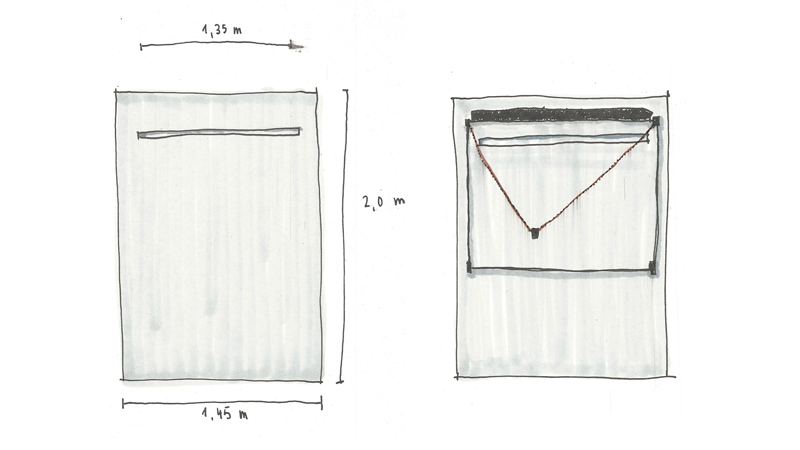 1,35 m
2,0 m
1,45 m